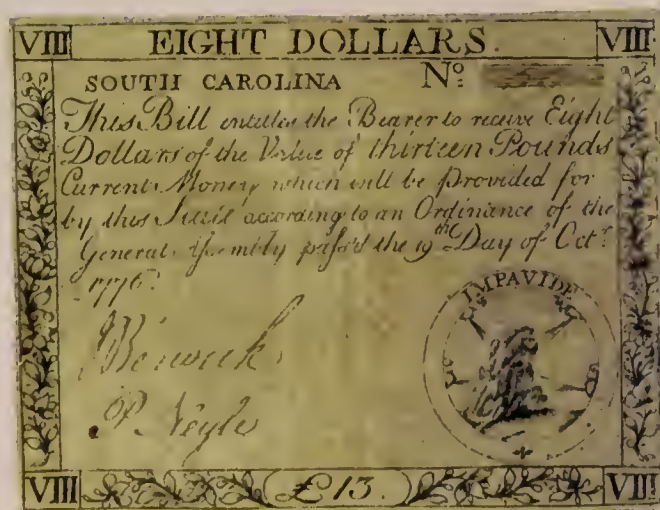 VIII EIGHT DOLLARS. VIII
SOUTH CAROLINA Nº
This Bill entitles the Bearer to receive Eight
Dollars of the Value of thirteen Pounds
Current Money which will be provided for
by this State according to an Ordinance of the
General Assembly pass'd the 19th Day of Octr.
1776.
IMPAVIDE
P. Neyle
VIII £13. VIII